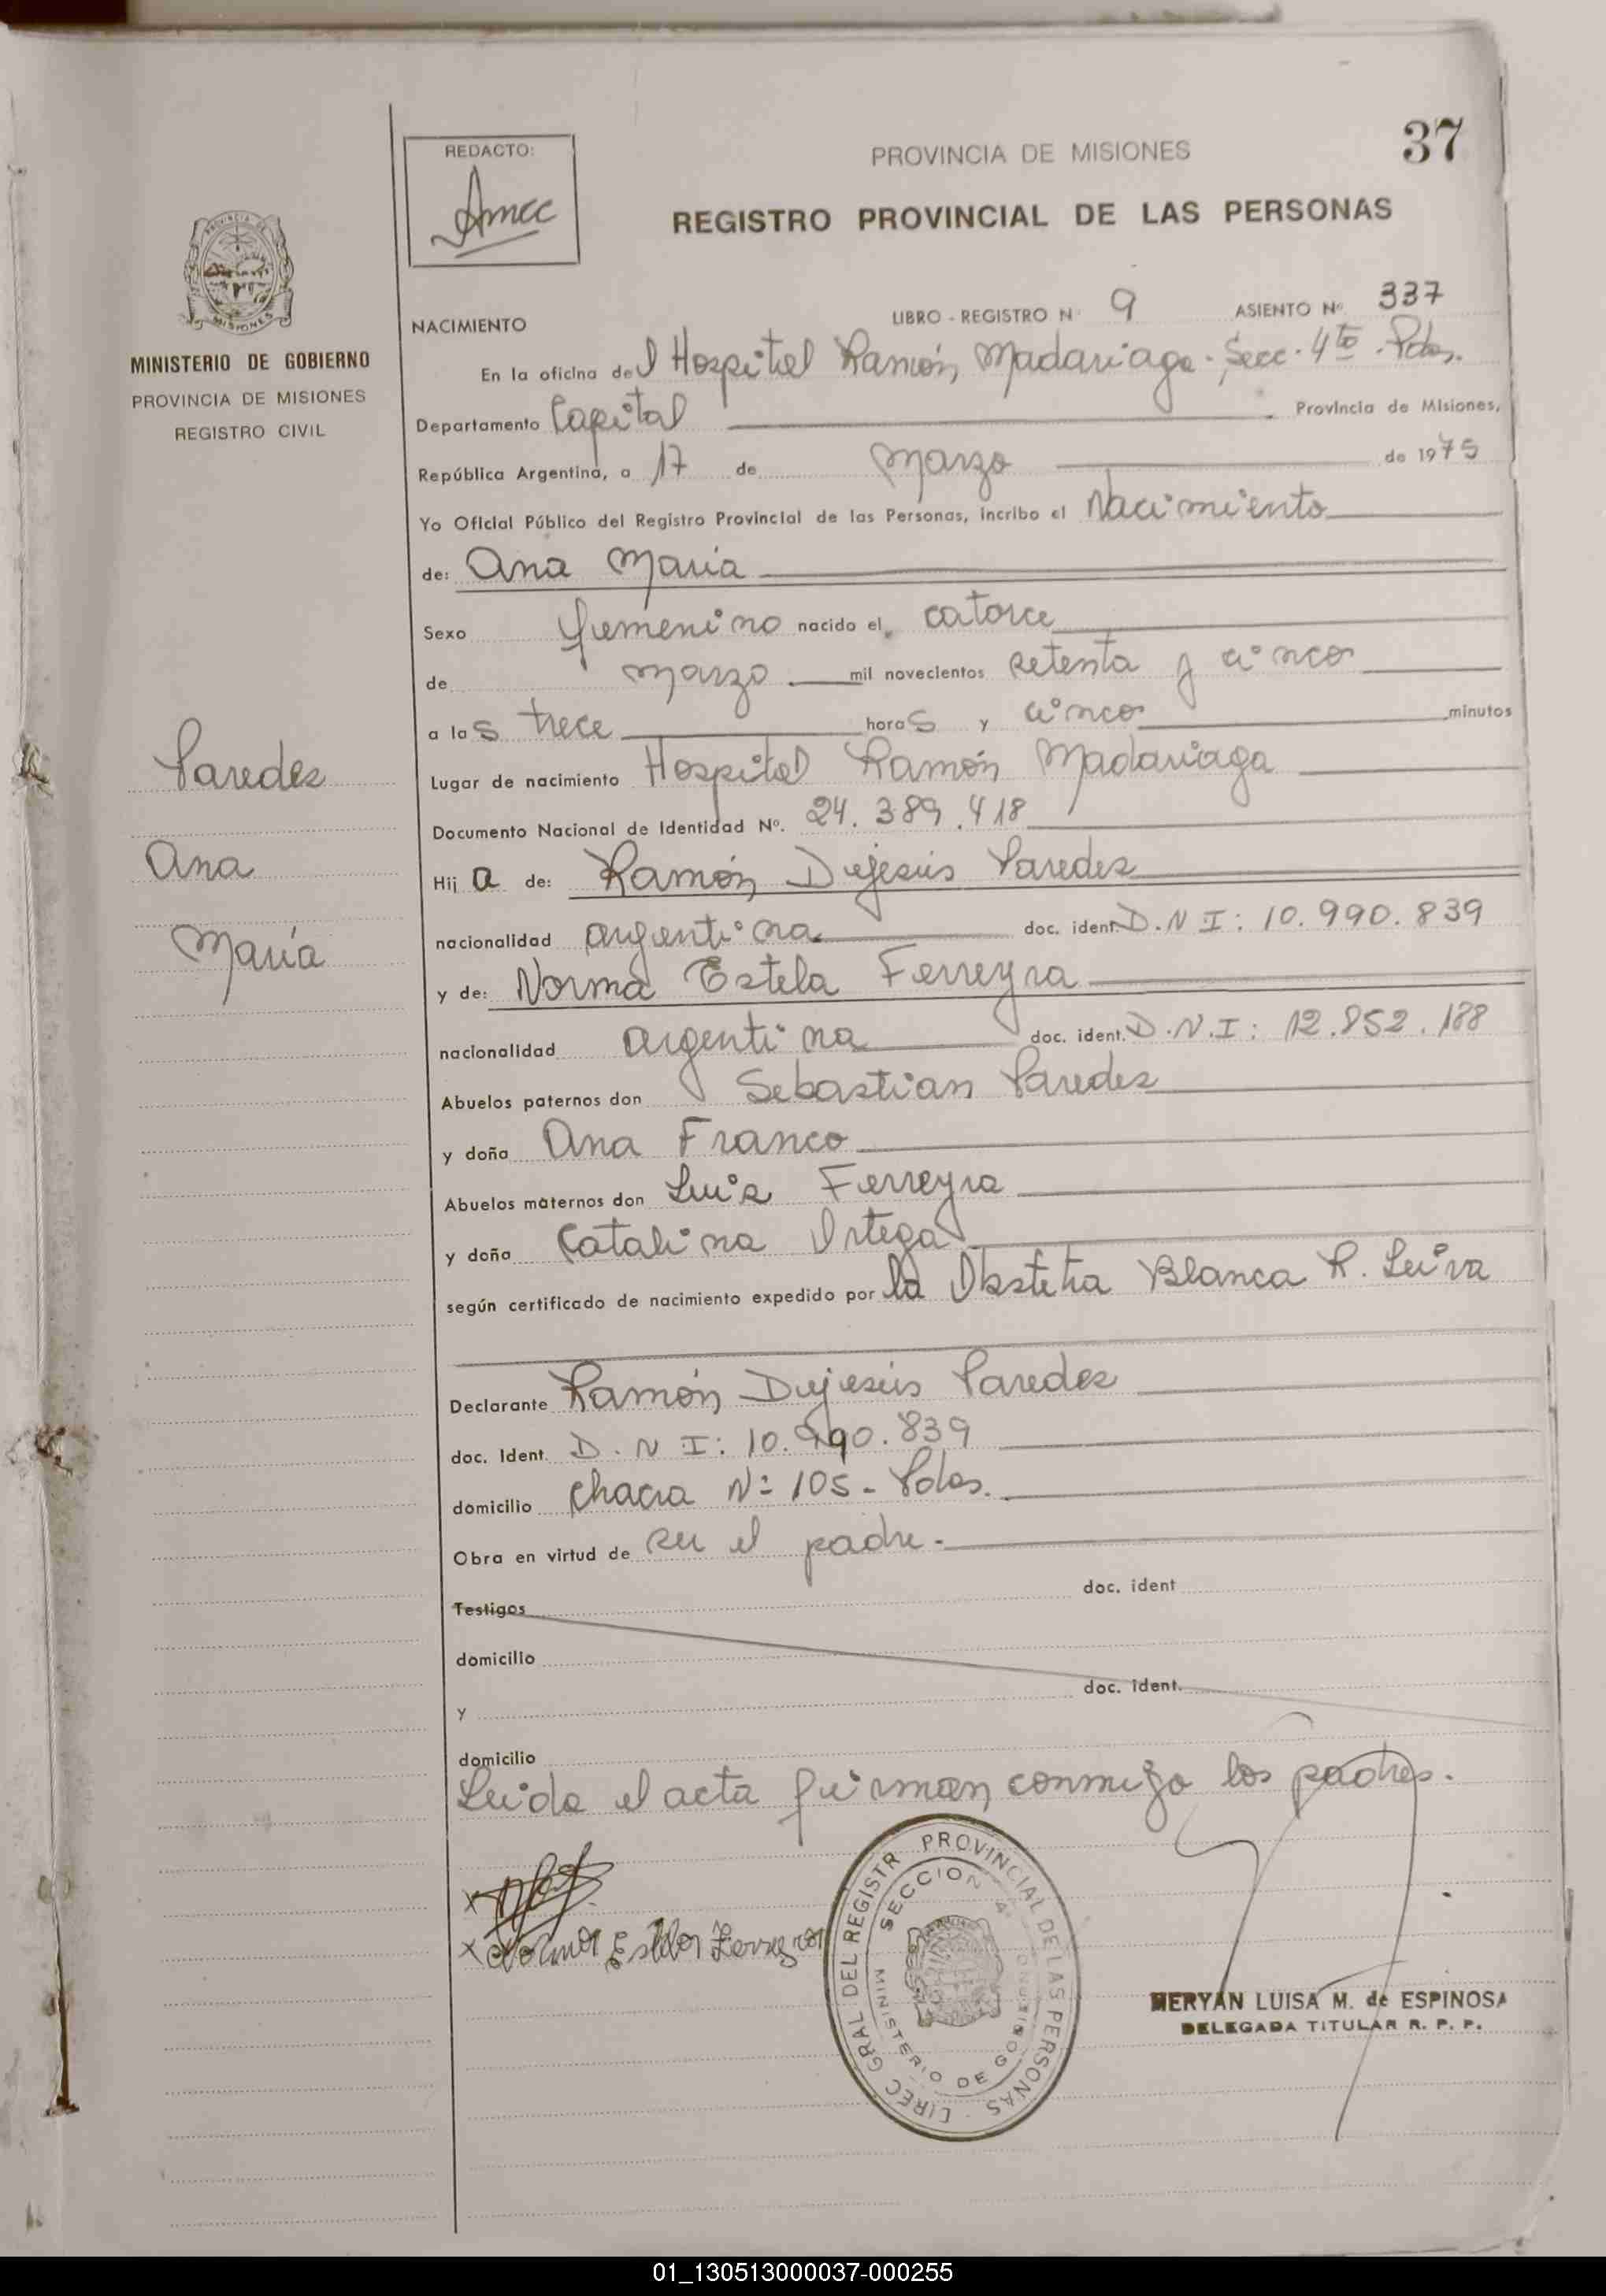 37
REDACTO:
PROVINCIA DE MISIONES
REGISTRO PROVINCIAL DE LAS PERSONAS
MINISTERIO DE GOBIERNO
PROVINCIA DE MISIONES
REGISTRO CIVIL
NACIMIENTO LIBRO - REGISTRO N 9 ASIENTO Nº 337
En la oficina del Hospital Ramón Madariaga - Secc. 4ta - Pdas.
Departamento Capital Provincia de Misiones,
República Argentina, a 17 de Marzo de 1975
Yo Oficial Público del Registro Provincial de las Personas, incribo el Nacimiento
de: Ana María
Sexo femenino nacido el catorce
de marzo mil novecientos setenta y cinco
a las trece horas y cinco minutos
Paredes
Lugar de nacimiento Hospital Ramón Madariaga
Documento Nacional de Identidad Nº. 24.389.418
Ana
Hija de: Ramón Dejesús Paredes
María
nacionalidad argentina doc. ident. D.N.I: 10.990.839
y de: Norma Estela Ferreyra
nacionalidad argentina doc. ident. D.N.I: 12.852.188
Abuelos paternos don Sebastian Paredes
y doña Ana Franco
Abuelos maternos don Luis Ferreyra
y doña Catalina Ortega
según certificado de nacimiento expedido por la Obstetra Blanca R. Leiva
Declarante Ramón Dejesús Paredes
doc. Ident. D.N.I: 10.990.839
domicilio Chacra Nº 105 - Pdas.
Obra en virtud de ser el padre.
Testigos doc. ident
domicilio
y doc. ident.
domicilio
Leida el acta firman conmigo los padres.
x Norma Estela Ferreyra
DIREC GRAL DEL REGISTR PROVINCIAL DE LAS PERSONAS
SECCION 4ª
MINISTERIO DE GOBIERNO
MERYAN LUISA M. de ESPINOSA
DELEGADA TITULAR R. P. P.
01_130513000037-000255